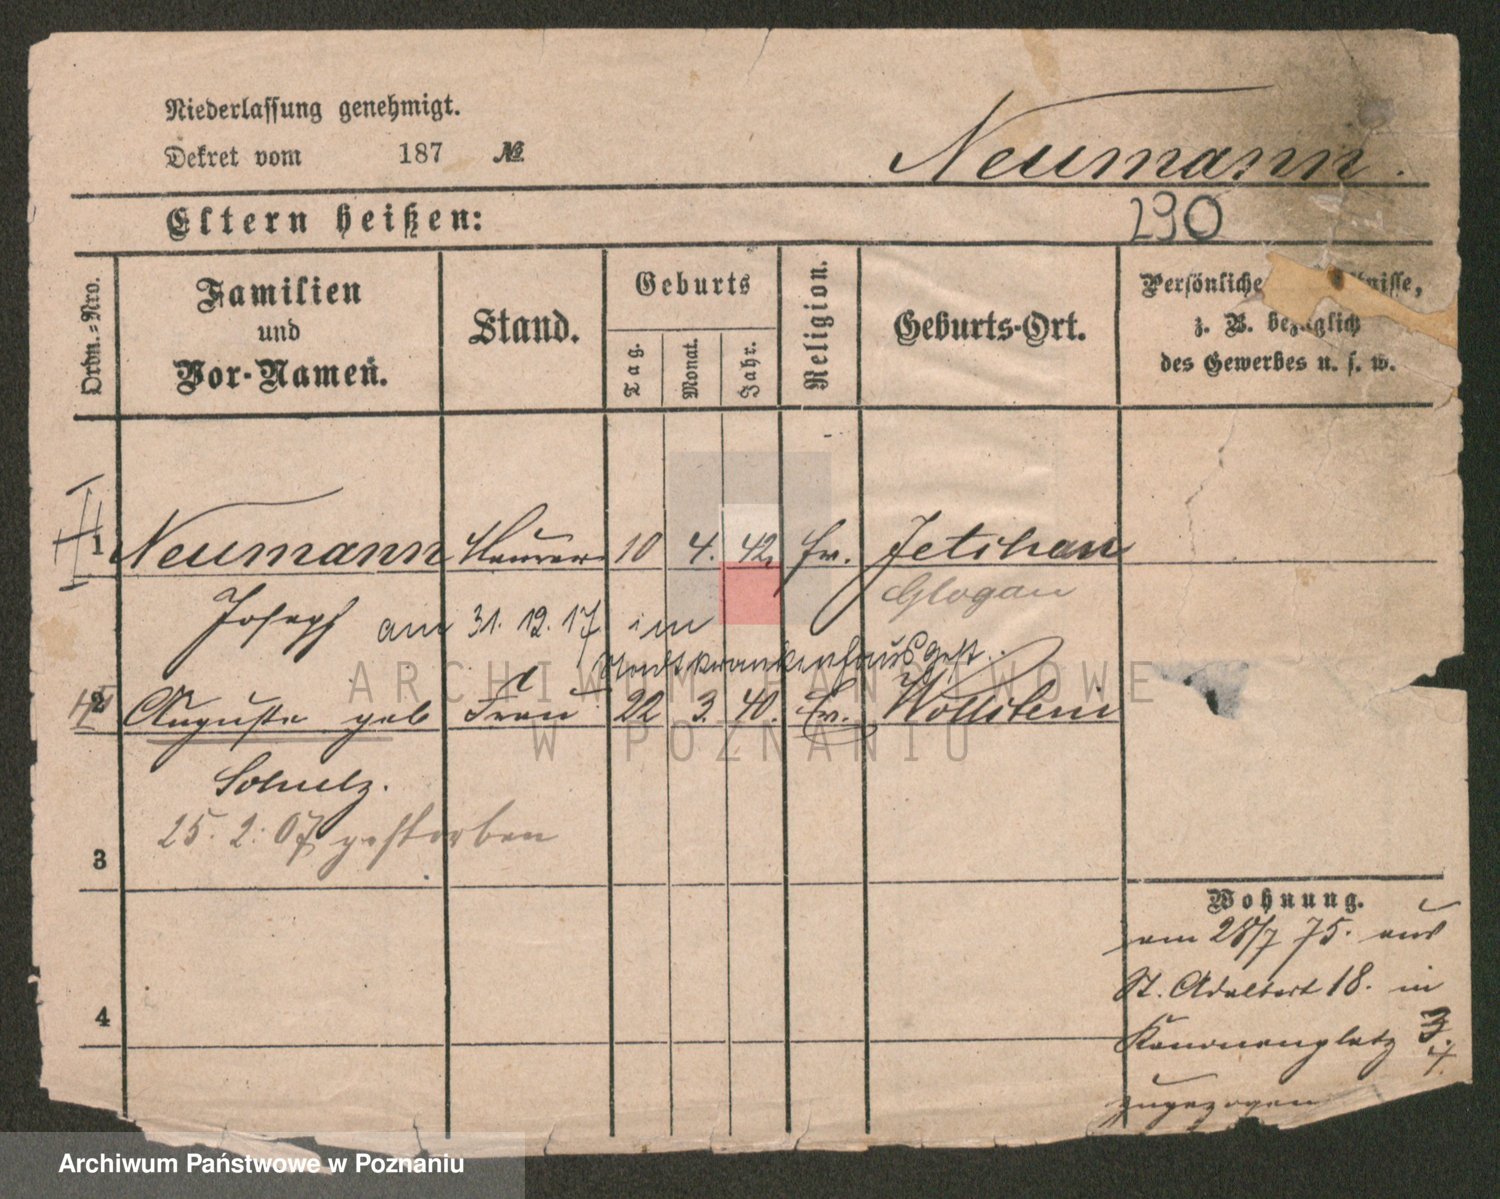 Niederlassung genehmigt.
Dekret vom 187 №
Neumann.
Eltern heißen:
290
Ordn.-Nro.
Familien
und
Vor-Namen.
Stand.
Geburts
Tag.
Monat.
Jahr.
Religion.
Geburts-Ort.
Persönliche nisse,
z. B. bezüglich
des Gewerbes u. s. w.
1 Neumann Maurer 10 4. 42. Ev.
Glogau
Joseph am 31. 12. 17 im
Stadtkrankenhaus gest.
2 Auguste geb Frau 22 3. 40. Ev. Wollstein
Schulz.
25. 2. 07 gestorben
3
4
Wohnung.
am 28/7 75. aus
St. Adalbert 18. in
Kanonenplatz 3.
4.
zugezogen
ARCHIWUM PAŃSTWOWE
W POZNANIU
Archiwum Państwowe w Poznaniu